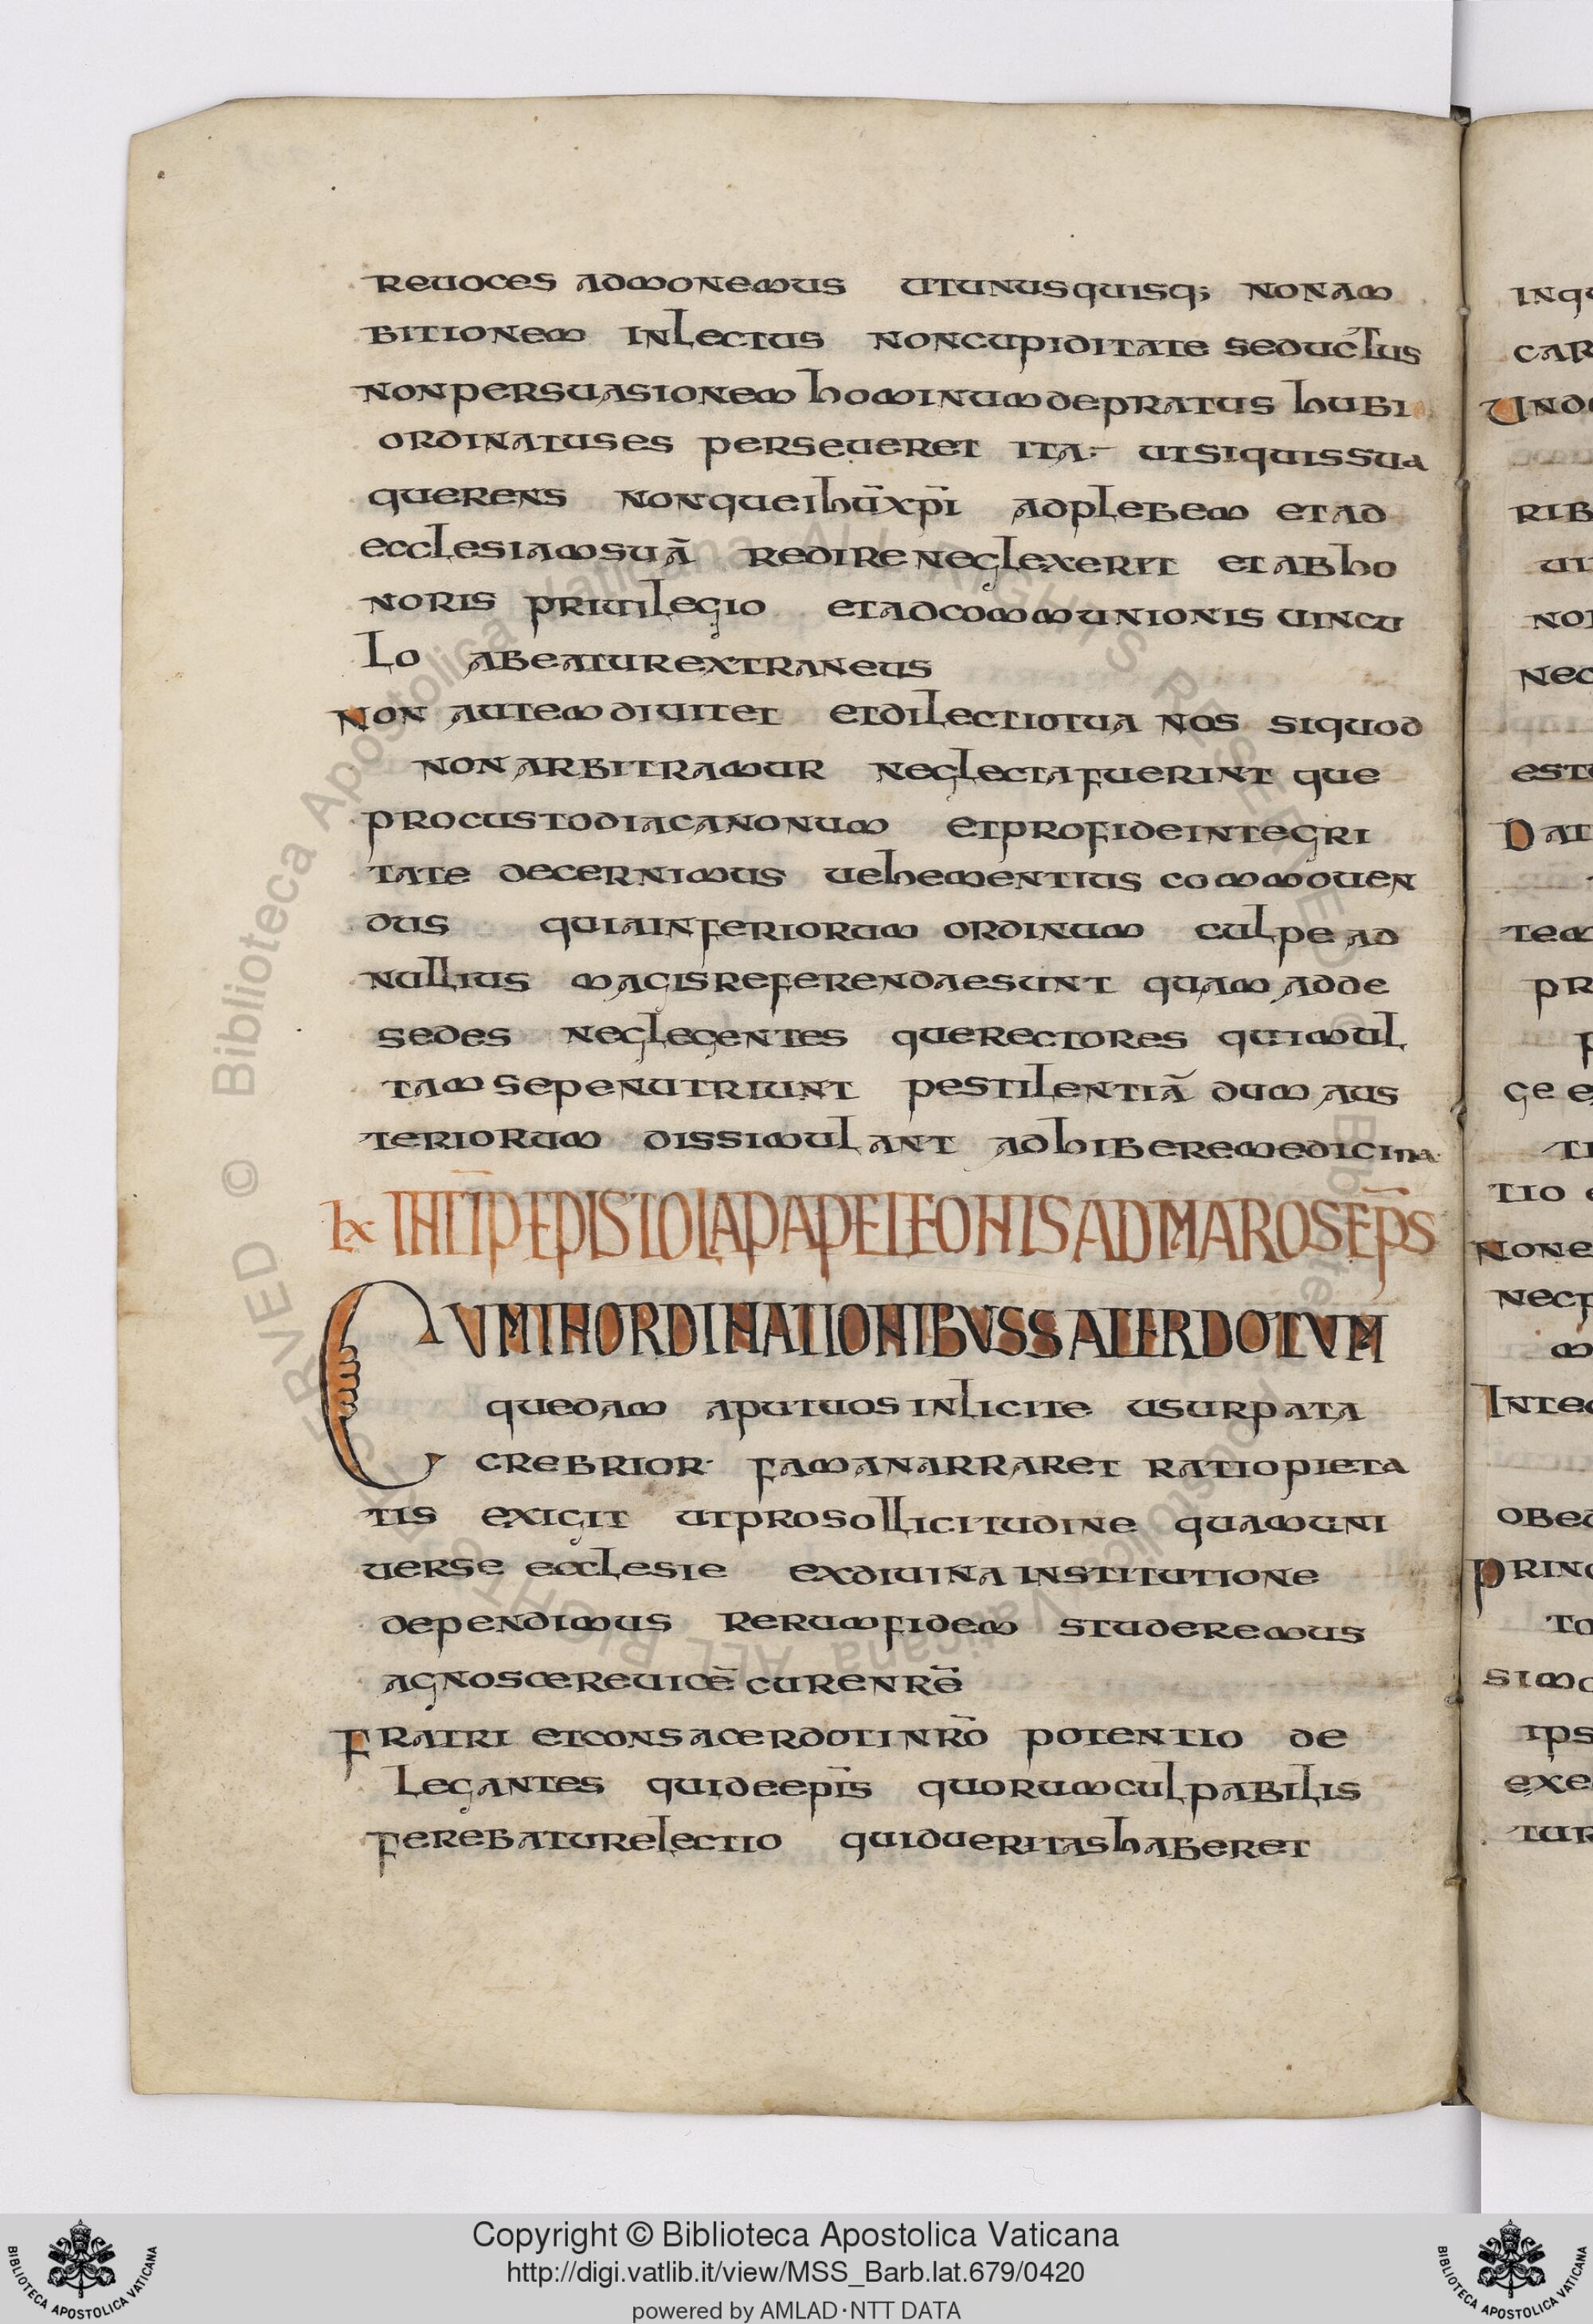 reuoces admonemus utunusquisq; nonam
bitionem inlectus noncupiditate seductus
nonpersuasionem hominumdepratus hubi
ordinatuses perseueret ita utsiquissua
querens nonqueihūxpī adplebem etad
ecclesiamsuā redireneglexerit etabho
noris priuilegio etadcommunionis uincu
lo abeaturextraneus
Non autemdiuitet etdilectiotua nos siquod
nonarbitramur neglectafuerint que
procustodiacanonum etprofideintegri
tate decernimus uehementius commouen
dus quiainferiorum ordinum culpe ad
nullius magisreferendaesunt quam adde
sedes neglegentes querectores quimul
tam sepenutriunt pestilentiā dum aus
teriorum dissimulant adhiberemedicina
lx INCĪPEPISTOLAPAPELEONISADMAROSEP̄S
CUMINORDINATIONIBUSSACERDOTUM
quedam aputuosinlicite usurpata
crebrior famanarraret ratiopieta
tis exigit utprosollicitudine quamuni
uerse ecclesie exdiuina institutione
dependimus rerumfidem studeremus
agnoscereuicē curenrē
Fratri etconsacerdotinrō potentio de
legantes quideepīs quorumculpabilis
ferebaturelectio quidueritashaberet
inqu
car
Unde
rib
ui
noi
nec
est
Dat
tem
pr
p
ge e
ti
tio
None
nec
m
Inte
obe
princ
to
simo
ips
exe
tur
Copyright © Biblioteca Apostolica Vaticana
http://digi.vatlib.it/view/MSS_Barb.lat.679/0420
powered by AMLAD·NTT DATA
BIBLIOTECA APOSTOLICA VATICANA
BIBLIOTECA APOSTOLICA VATICANA